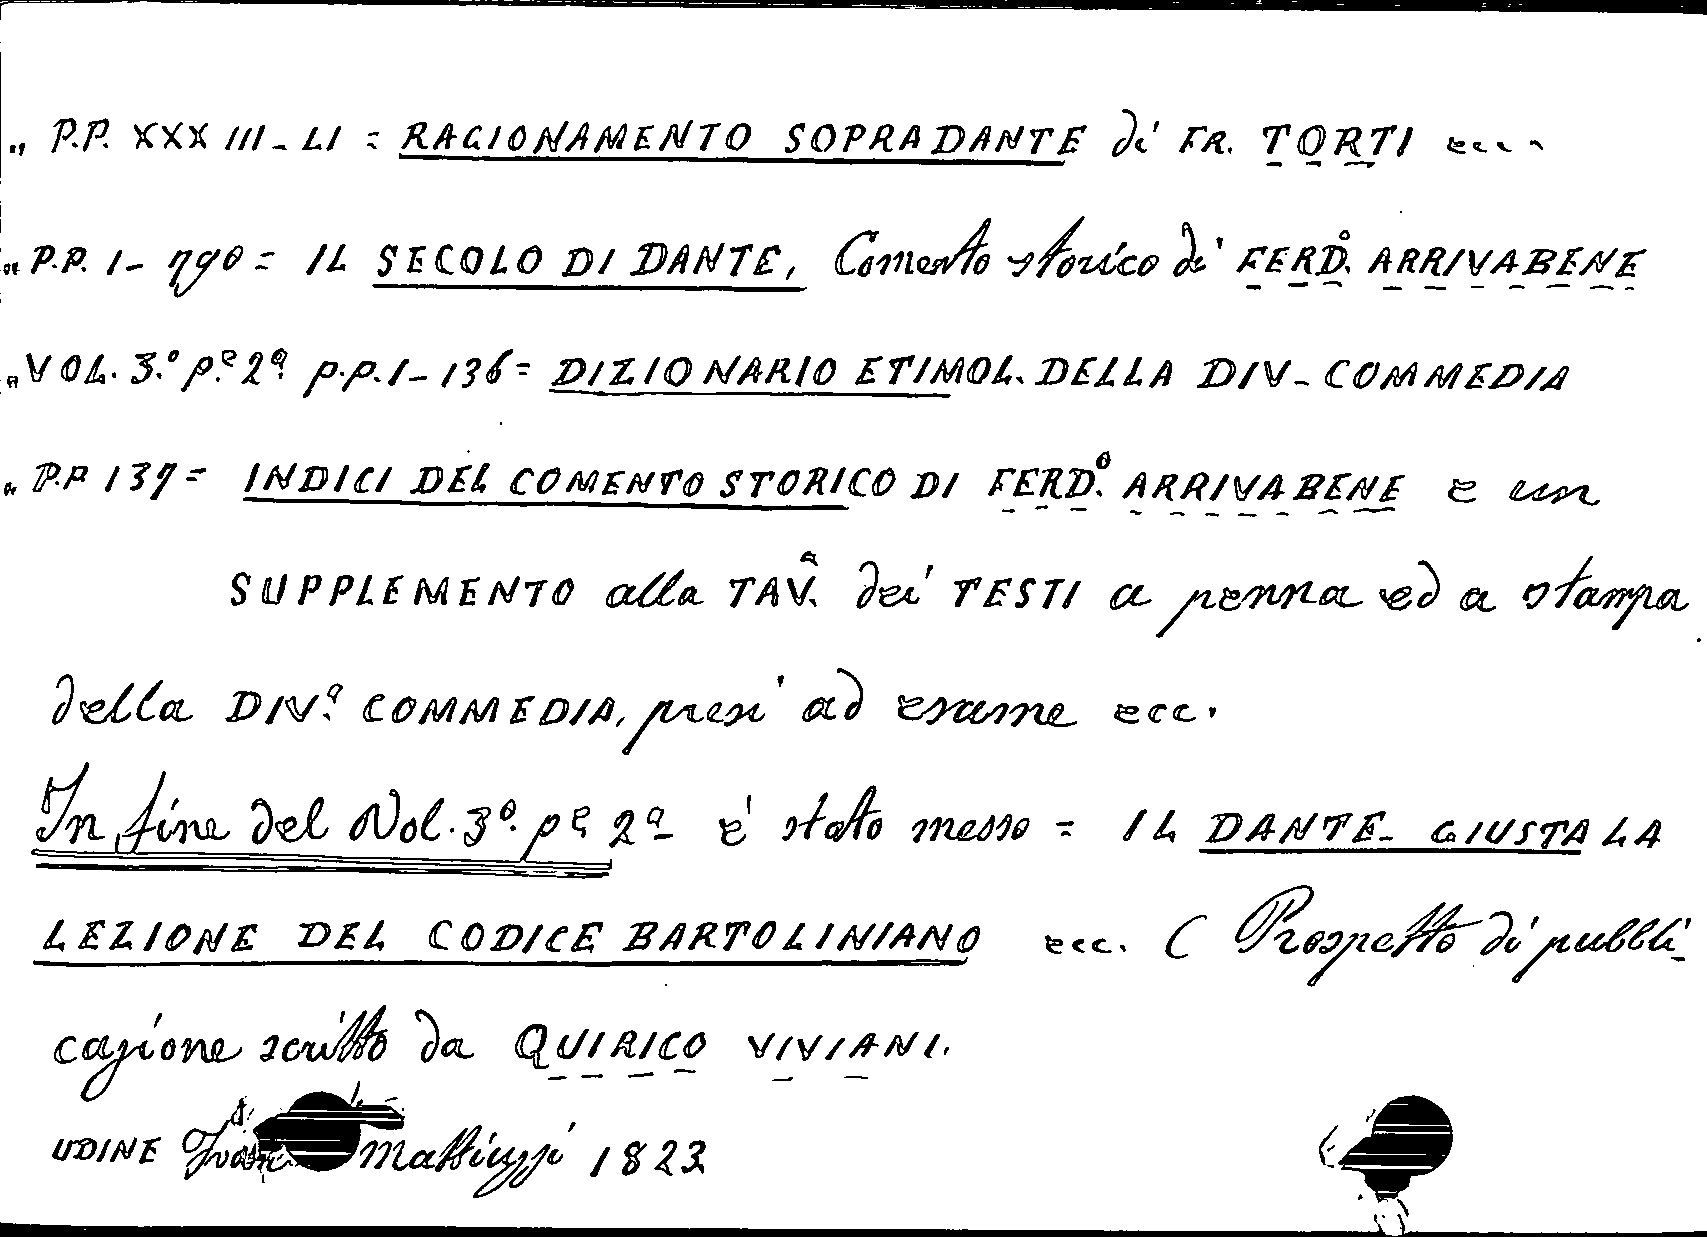 „ P.P. XXXIII-LI = RAGIONAMENTO SOPRA DANTE di FR. TORTI ecc.
„ P.P. 1-790 = IL SECOLO DI DANTE, Comento storico di FERD.º ARRIVABENE
„ VOL. 3.º p.e 2ª p.p. 1-136 = DIZIONARIO ETIMOL. DELLA DIV- COMMEDIA
„ P.P 137 = INDICI DEL COMENTO STORICO DI FERD.º ARRIVABENE e un
SUPPLEMENTO alla TAV.ª dei TESTI a penna ed a stampa
della DIV.ª COMMEDIA, presi ad esame ecc.
In fine del Vol. 3º. p.e 2ª è stato messo = IL DANTE- GIUSTA LA
LEZIONE DEL CODICE BARTOLINIANO ecc. ( Prospetto di pubbli-
cazione scritto da QUIRICO VIVIANI.
UDINE Mattiuzzi 1823